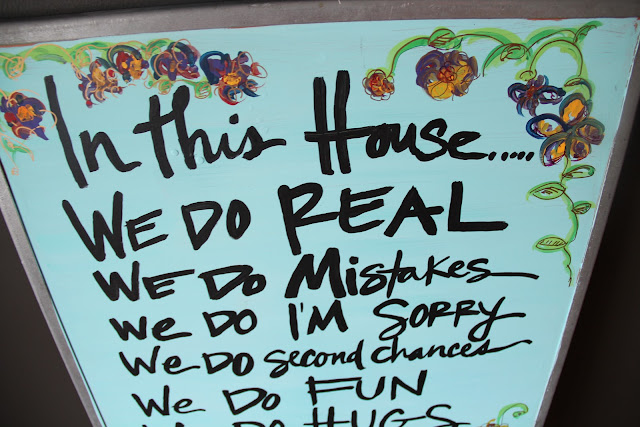 In this House.....
WE DO REAL
WE DO Mistakes
We DO I'M SORRY
We DO second chances
We Do FUN
We DO HUGS